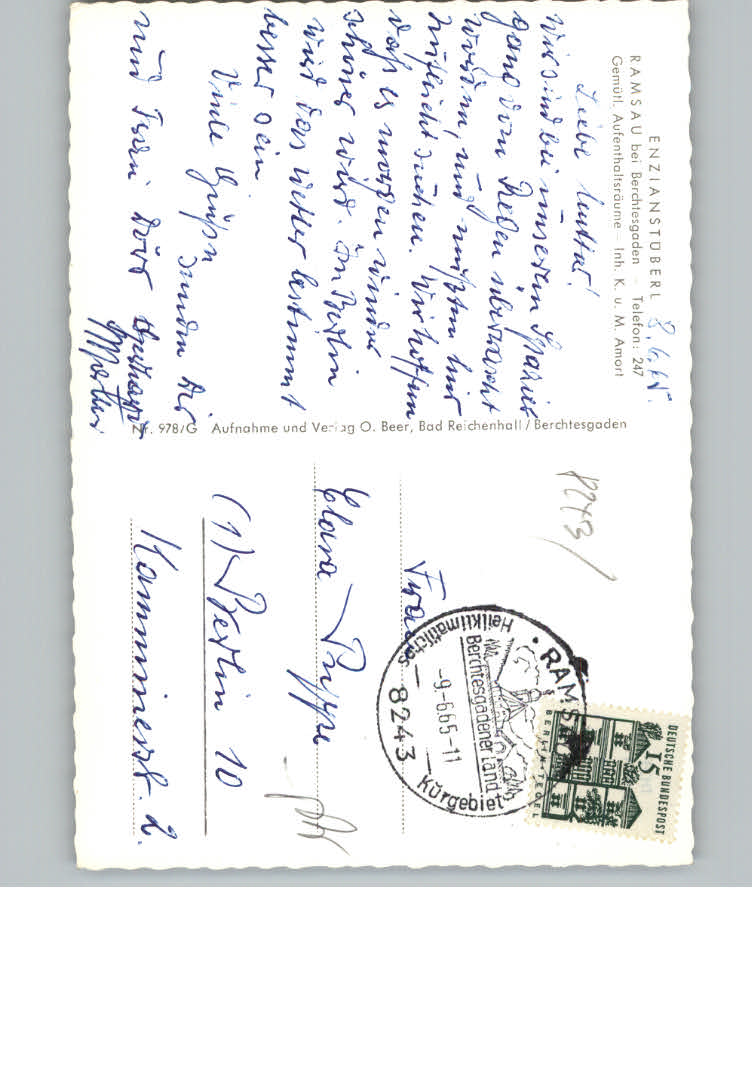 ENZIANSTÜBERL
RAMSAU bei Berchtesgaden - Telefon: 247
Gemütl. Aufenthaltsräume - Inh. K. u. M. Amort
8.6.65.
Liebe Mutter!
Wir sind bei unserem Spazier
gang vom Regen überrascht
worden, und mußten hier
Zuflucht suchen. Wir hoffen
daß es morgen wieder
schöner wird. In Berlin
wird das Wetter bestimmt
besser sein
Viele Grüße senden Dir
und
Nr. 978/G Aufnahme und Verlag O. Beer, Bad Reichenhall/Berchtesgaden
8243
Frau
Clara
(1) Berlin 10
2.
RAMSAU
Heilklimatisches
Berchtesgadener Land
-9.-6.65-11
8243
Kurgebiet
DEUTSCHE BUNDESPOST
15
BERLIN-TEGEL